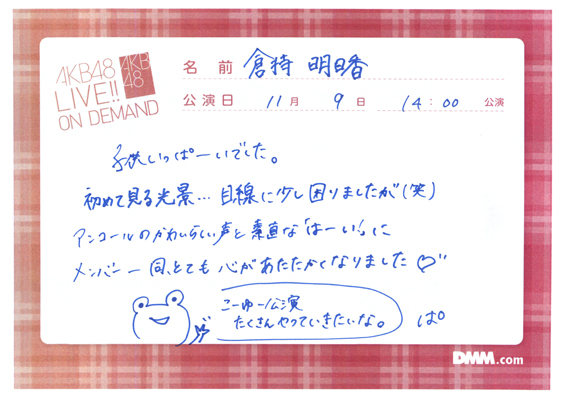 AKB48
LIVE!!
ON DEMAND
AKB
48
名前 倉持 明日香
公演日 11月 9日 14:00 公演
子供いっぱーいでした。
初めて見る光景…目線に少し困りましたが(笑)
アンコールのかわいらしい声と素直な「はーい!」に
メンバー一同、とても心があたたかくなりました♡
こーゆー公演
たくさんやっていきたいな。
ぱ
DMM.com